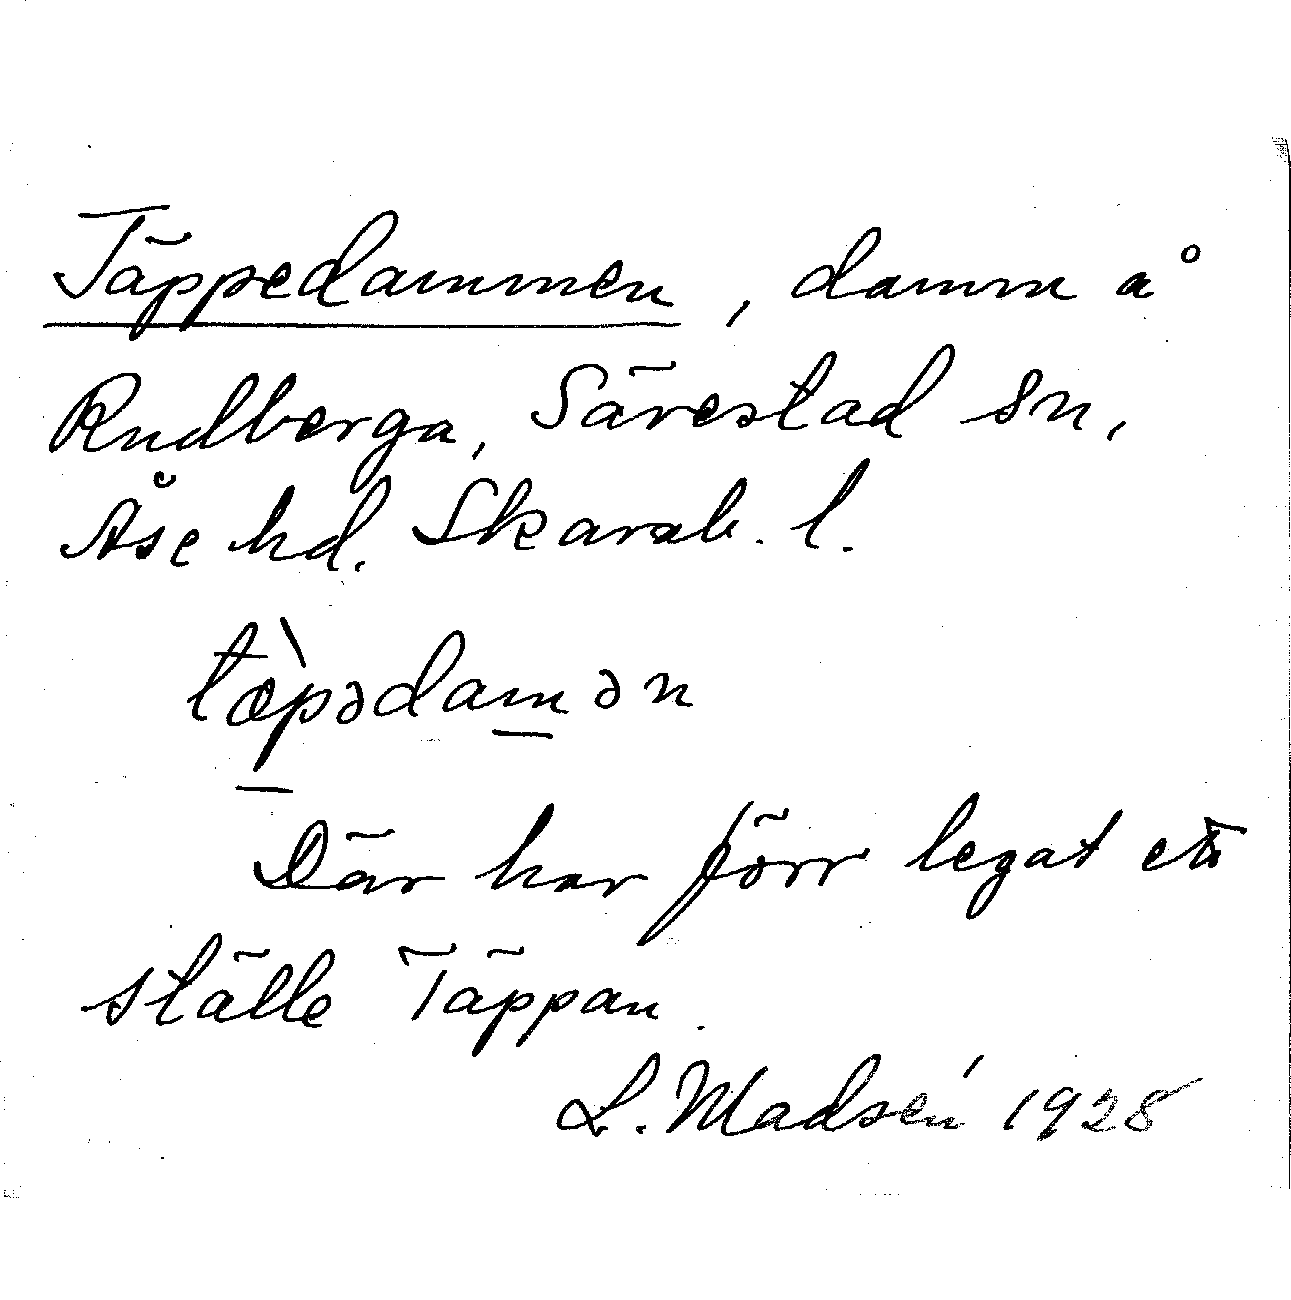 Täppedammen, damm å
Rudberga, Särestad sn,
Åse hd. Skarab. l.
tæ̀pədamən
Där har förr legat ett
ställe Täppan.
L. Madsén 1928